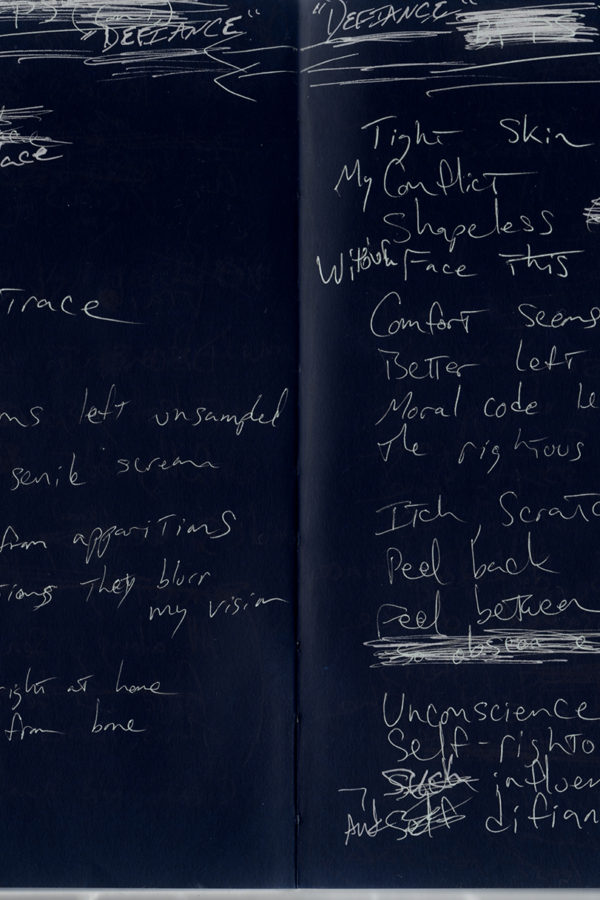 "DEFIANCE"
ace
Trace
ms left unsampled
senile scream
from apparitions
tions they blurr
my vision
right at home
from bone
"DEFIANCE"
Tight Skin
My Conflict
Shapeless
Without Face This
Comfort seems
Better left
Moral code
The rightous
Itch, Scratc
Peel back
Feel between
Unconscience
Self-righto
Such influen
And Self difian